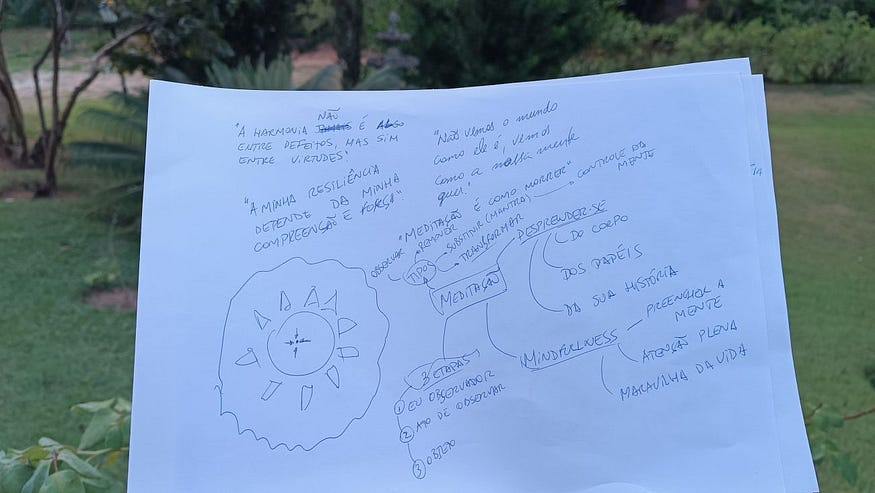 NÃO
"A HARMONIA É
ENTRE DEFEITOS, MAS SIM
ENTRE VIRTUDES"
"A MINHA RESILIÊNCIA
DEPENDE DA MINHA
COMPREENÇÃO E FORÇA"
"Não vemos o mundo
como ele é, vemos
como a nossa mente
quer."
"MEDITAÇÃO É COMO MORRER"
OBSERVAR
REMOVER
SUBSTITUIR (MANTRA)
TRANSFORMAR
CONTROLE DA
MENTE
TIPOS
MEDITAÇÃO
DESPRENDER-SE
DO CORPO
DOS PAPÉIS
DA SUA HISTÓRIA
MINDFULNESS
PREENCHER A
MENTE
ATENÇÃO PLENA
MARAVILHA DA VIDA
3 ETAPAS
1 EU OBSERVADOR
2 ATO DE OBSERVAR
3 OBJETO